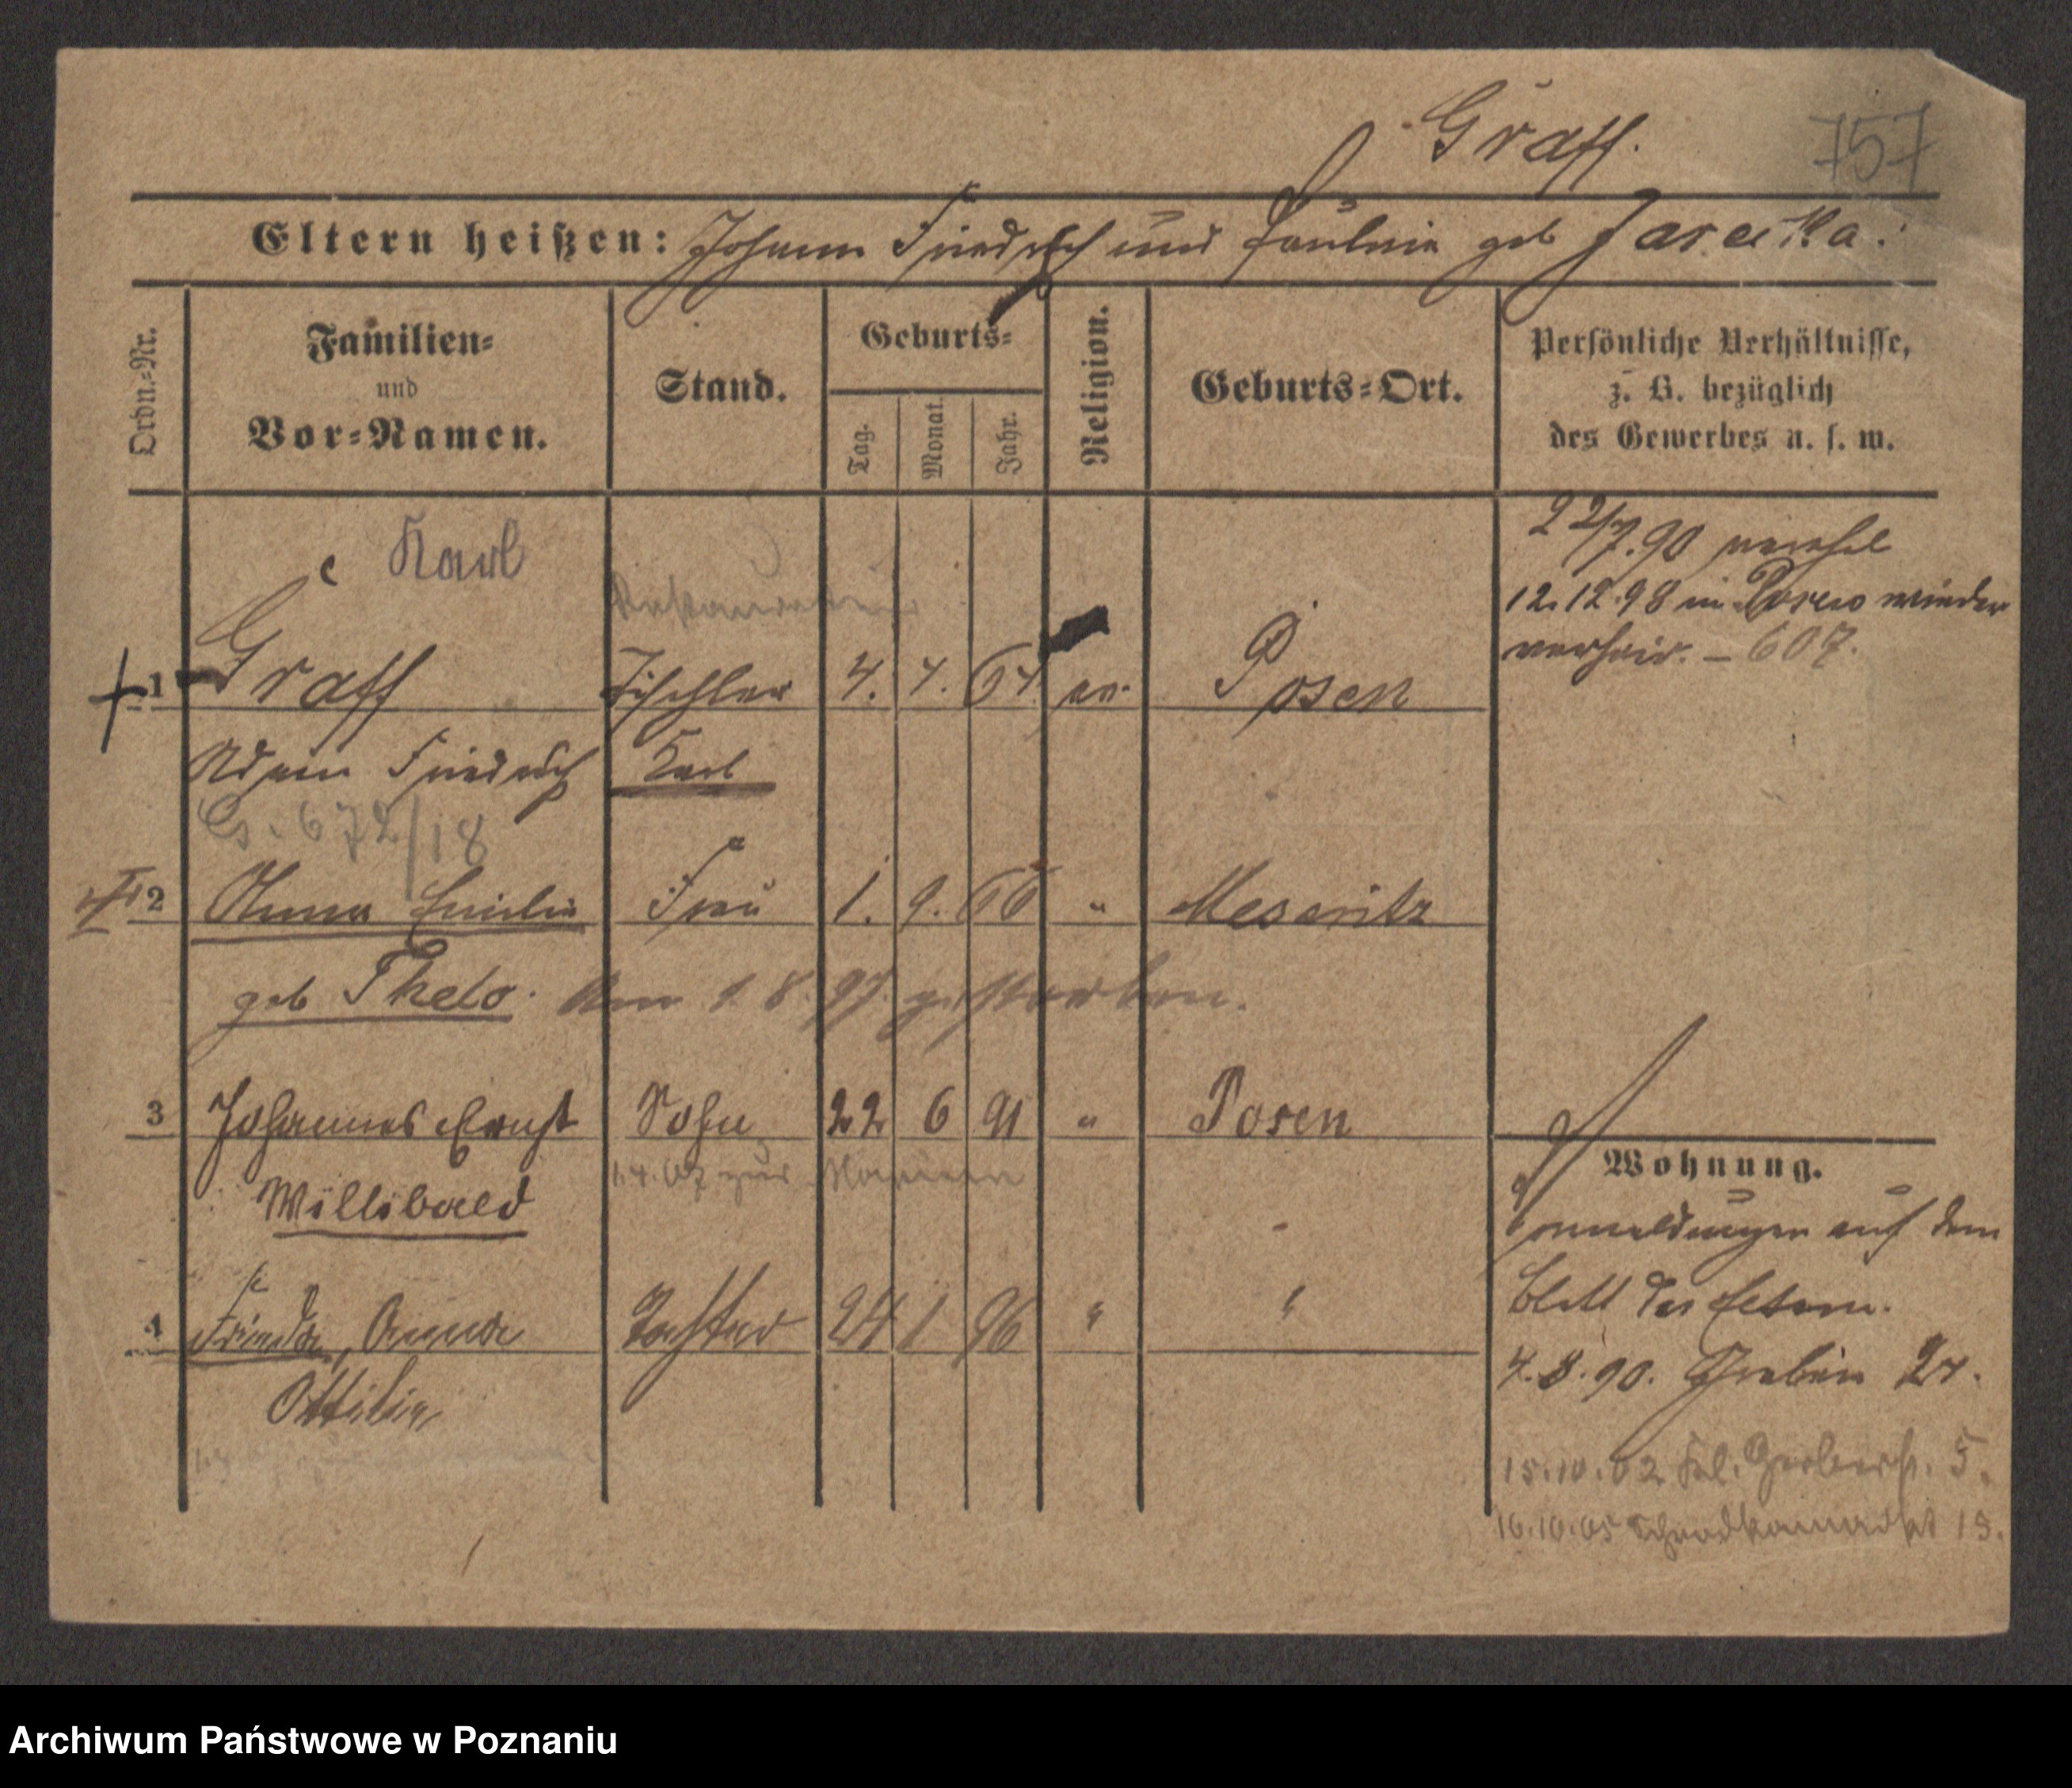 Graff.
757
Eltern heißen: Johann Friedrich und Pauline geb Jarecka.
Ordn.-Nr.
Familien-
und
Vor-Namen.
Stand.
Geburts-
Tag.
Monat.
Jahr.
Religion.
Geburts-Ort.
Persönliche Verhältnisse,
z. B. bezüglich
des Gewerbes u. s. w.
22/7.90 verehel
12.12.98 in Posen wieder
verheir. – 607.
Karl
Restaurateur
1 Graff Tischler 4. 4. 64. ev. Posen
Adam Friedrich Karl
G. 672/18
2 Anna Emilie Frau 1. 9. 66 " Meseritz
geb Thelo. Am 1 8. 97. gestorben.
3 Johannes Ernst Sohn 22 6 91 " Posen
1.4.07 zur Marine
Willibald
4 Frieda, Anna Tochter 24 1 96 " "
Ottilie
Wohnung.
auf dem
Blatt der Eltern.
4.8.90. Graben 24.
15.10.02 Kl. Gerberstr. 5.
10.10.05 Schrodkamarkt 13.
Archiwum Państwowe w Poznaniu